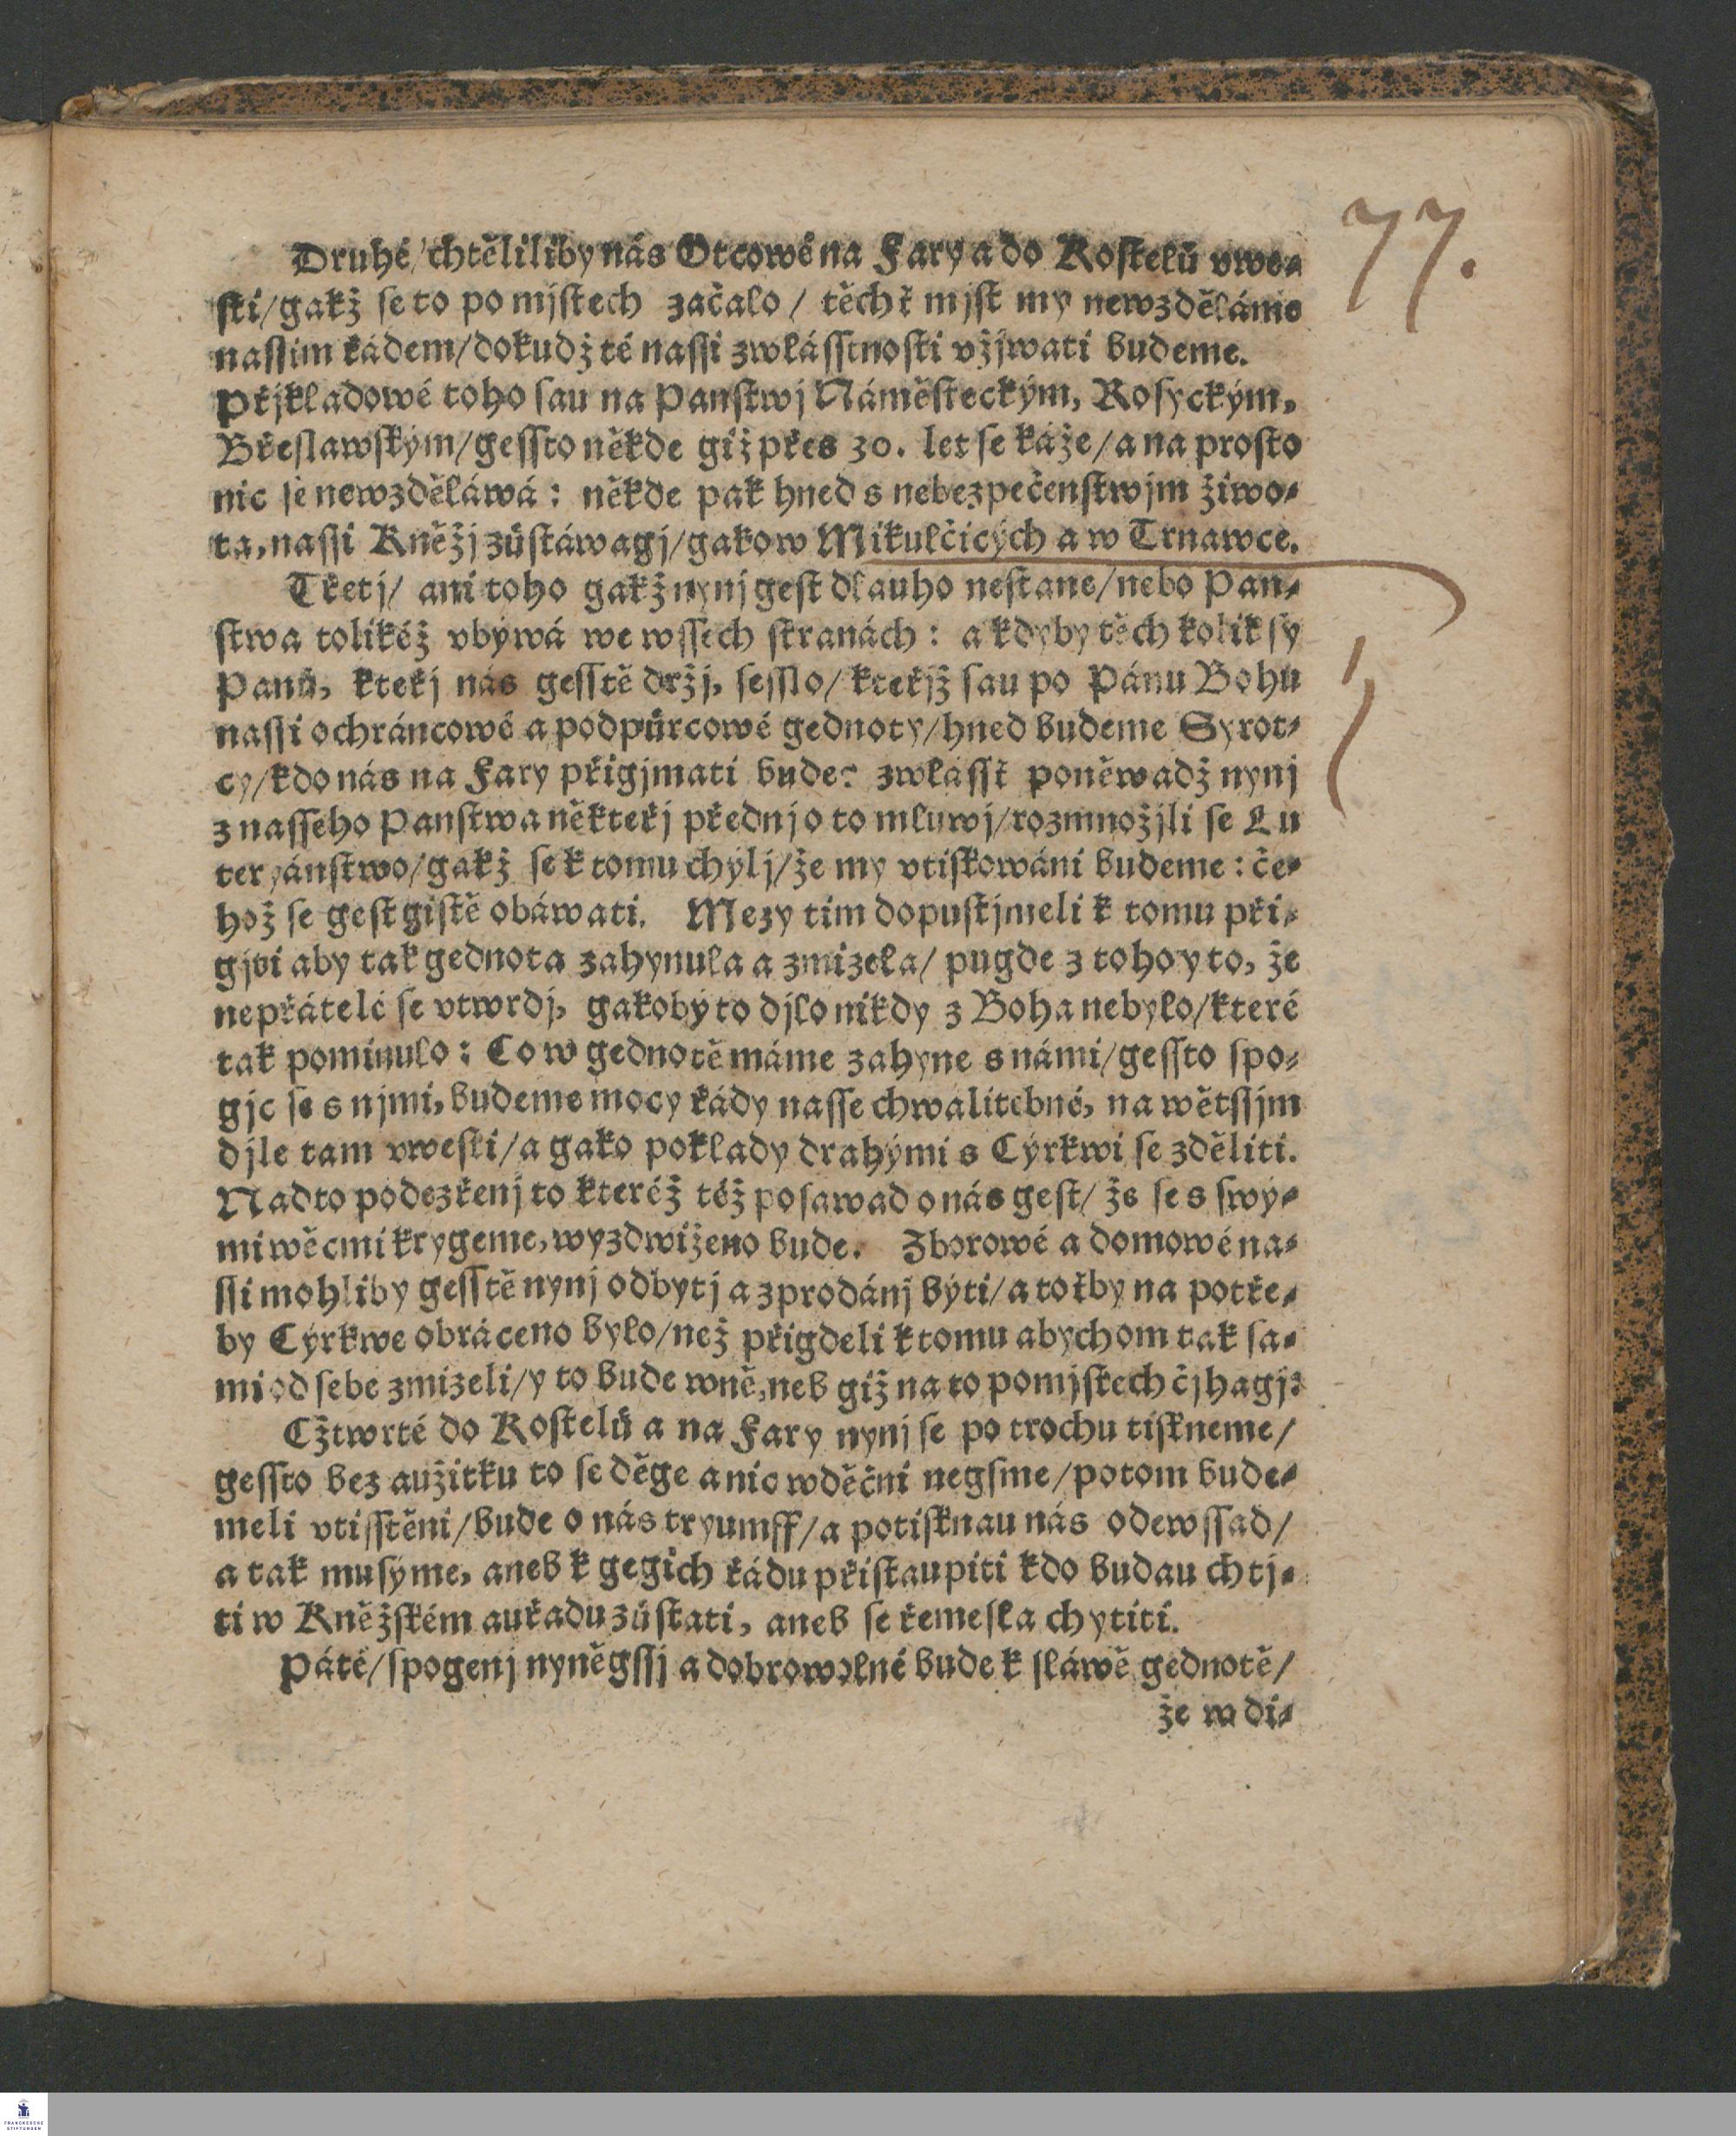 77.
Druhé/chtěliliby nás Otcowé na Fary a do Kostelů vwe-
sti/gakž se to po mjstech začalo/ těchť mjst my newzděláme
nassim řádem/dokudž té nassi zwlásstnosti vžjwati budeme.
Přjkladowé toho sau na Panstwj Náměsteckým, Rosyckým,
Břeslawským/gessto někde giž přes 30. let se káže/a na prosto
nic se newzděláwá: někde pak hned s nebezpečenstwjm žiwo-
ta, nassi Kněžj zůstáwagj/gako w Mikulčicých a w Trnawce.
Třetj/ ani toho gakž nynj gest dlauho nestane/nebo Pan-
stwa tolikéž vbýwá we wssech stranách: a kdyby těch kolik sy
Panů, kteřj nás gesstě držj, sesslo/kteřjž sau po Pánu Bohu
nassi ochráncowé a podpůrcowé gednoty/hned budeme Syrot-
cy/kdo nás na Fary přigjmati bude? zwlásst poněwadž nynj
z nasseho Panstwa někteřj přednj o to mluwj/rozmnožjli se Lu
teryánstwo/gakž se k tomu chýlj/že my vtiskowáni budeme: če-
hož se gest gistě obáwati. Mezy tim dopustjmeli k tomu při-
gjti aby tak gednota zahynula a zmizela/ pugde z toho y to, že
nepřátelé se vtwrdj, gakoby to djlo nikdy z Boha nebylo/které
tak pominulo: Co w gednotě máme zahyne s námi/gessto spo-
gjc se s njmi, budeme mocy řády nasse chwalitebné, na wětssjm
djle tam vwesti/a gako poklady drahými s Cýrkwi se zděliti.
Nad to podezřenj to kteréž též posawad o nás gest/ že se s swý-
mi wěcmi krygeme, wyzdwiženo bude. Zborowé a domowé na-
ssi mohliby gesstě nynj odbytj a zprodánj býti/a toťby na potře-
by Cýrkwe obráceno bylo/než přigdeli k tomu abychom tak sa-
mi od sebe zmizeli/y to bude wně, neb giž na to po mjstech čjhagj:
Cžtwrté do Kostelů a na Fary nynj se po trochu tiskneme/
gessto bez aužitku to se děge a nic wděčni negsme/potom bude-
meli vtisstěni/bude o nás tryumff/a potisknau nás odewssad/
a tak musýme, aneb k gegich řádu přistaupiti kdo budau chtj-
ti w Kněžském auřadu zůstati, aneb se řemesla chytiti.
Páté/spogenj nyněgssj a dobrowolné bude k sláwě gednotě/
že w di-
FRANCKESCHE
STIFTUNGEN